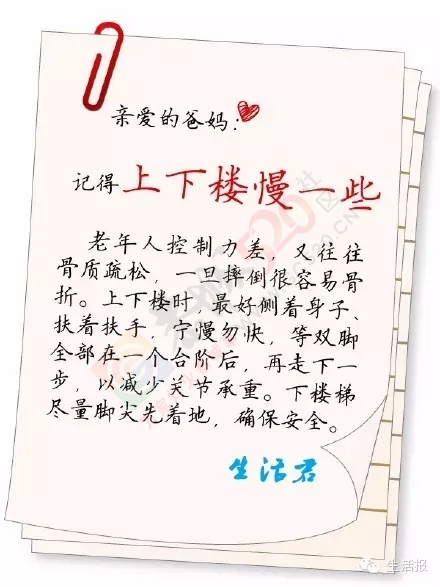 亲爱的爸妈：
记得上下楼慢一些
老年人控制力差，又往往
骨质疏松，一旦摔倒很容易骨
折。上下楼时，最好侧着身子、
扶着扶手，宁慢勿快，等双脚
全部在一个台阶后，再走下一
步，以减少关节承重。下楼梯
尽量脚尖先着地，确保安全。
生活君
生活报